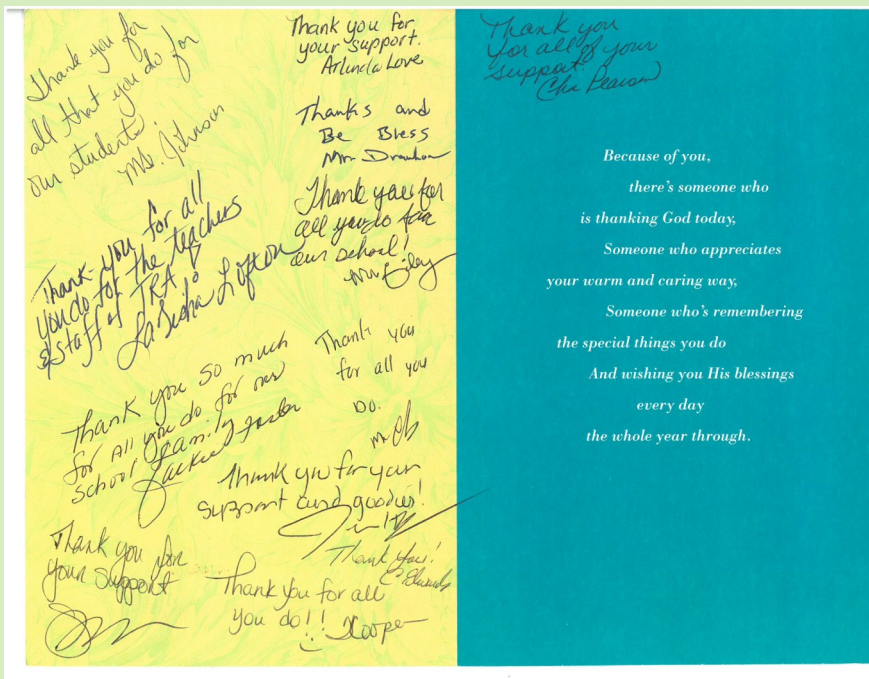 Thank you for
all that you do for
our students.
Ms. Johnson
Thank you for
your support.
Arlinda Love
Thanks and
Be Bless
Thank you for
all you do for
our school!
Thank-you for all
you do for the teachers
& Staff of TRA!
LaSicha Lofton
Thank you so much
for All you do for our
school family
Jackie Foster
Thank you
for all you
DO.
Thank you for your
support and goodies!
Thank you for
your support
Thank You!
C Edwards
Thank you for all
you do!!
Hooper
Thank you
for all of your
support
Because of you,
there's someone who
is thanking God today,
Someone who appreciates
your warm and caring way,
Someone who's remembering
the special things you do
And wishing you His blessings
every day
the whole year through.